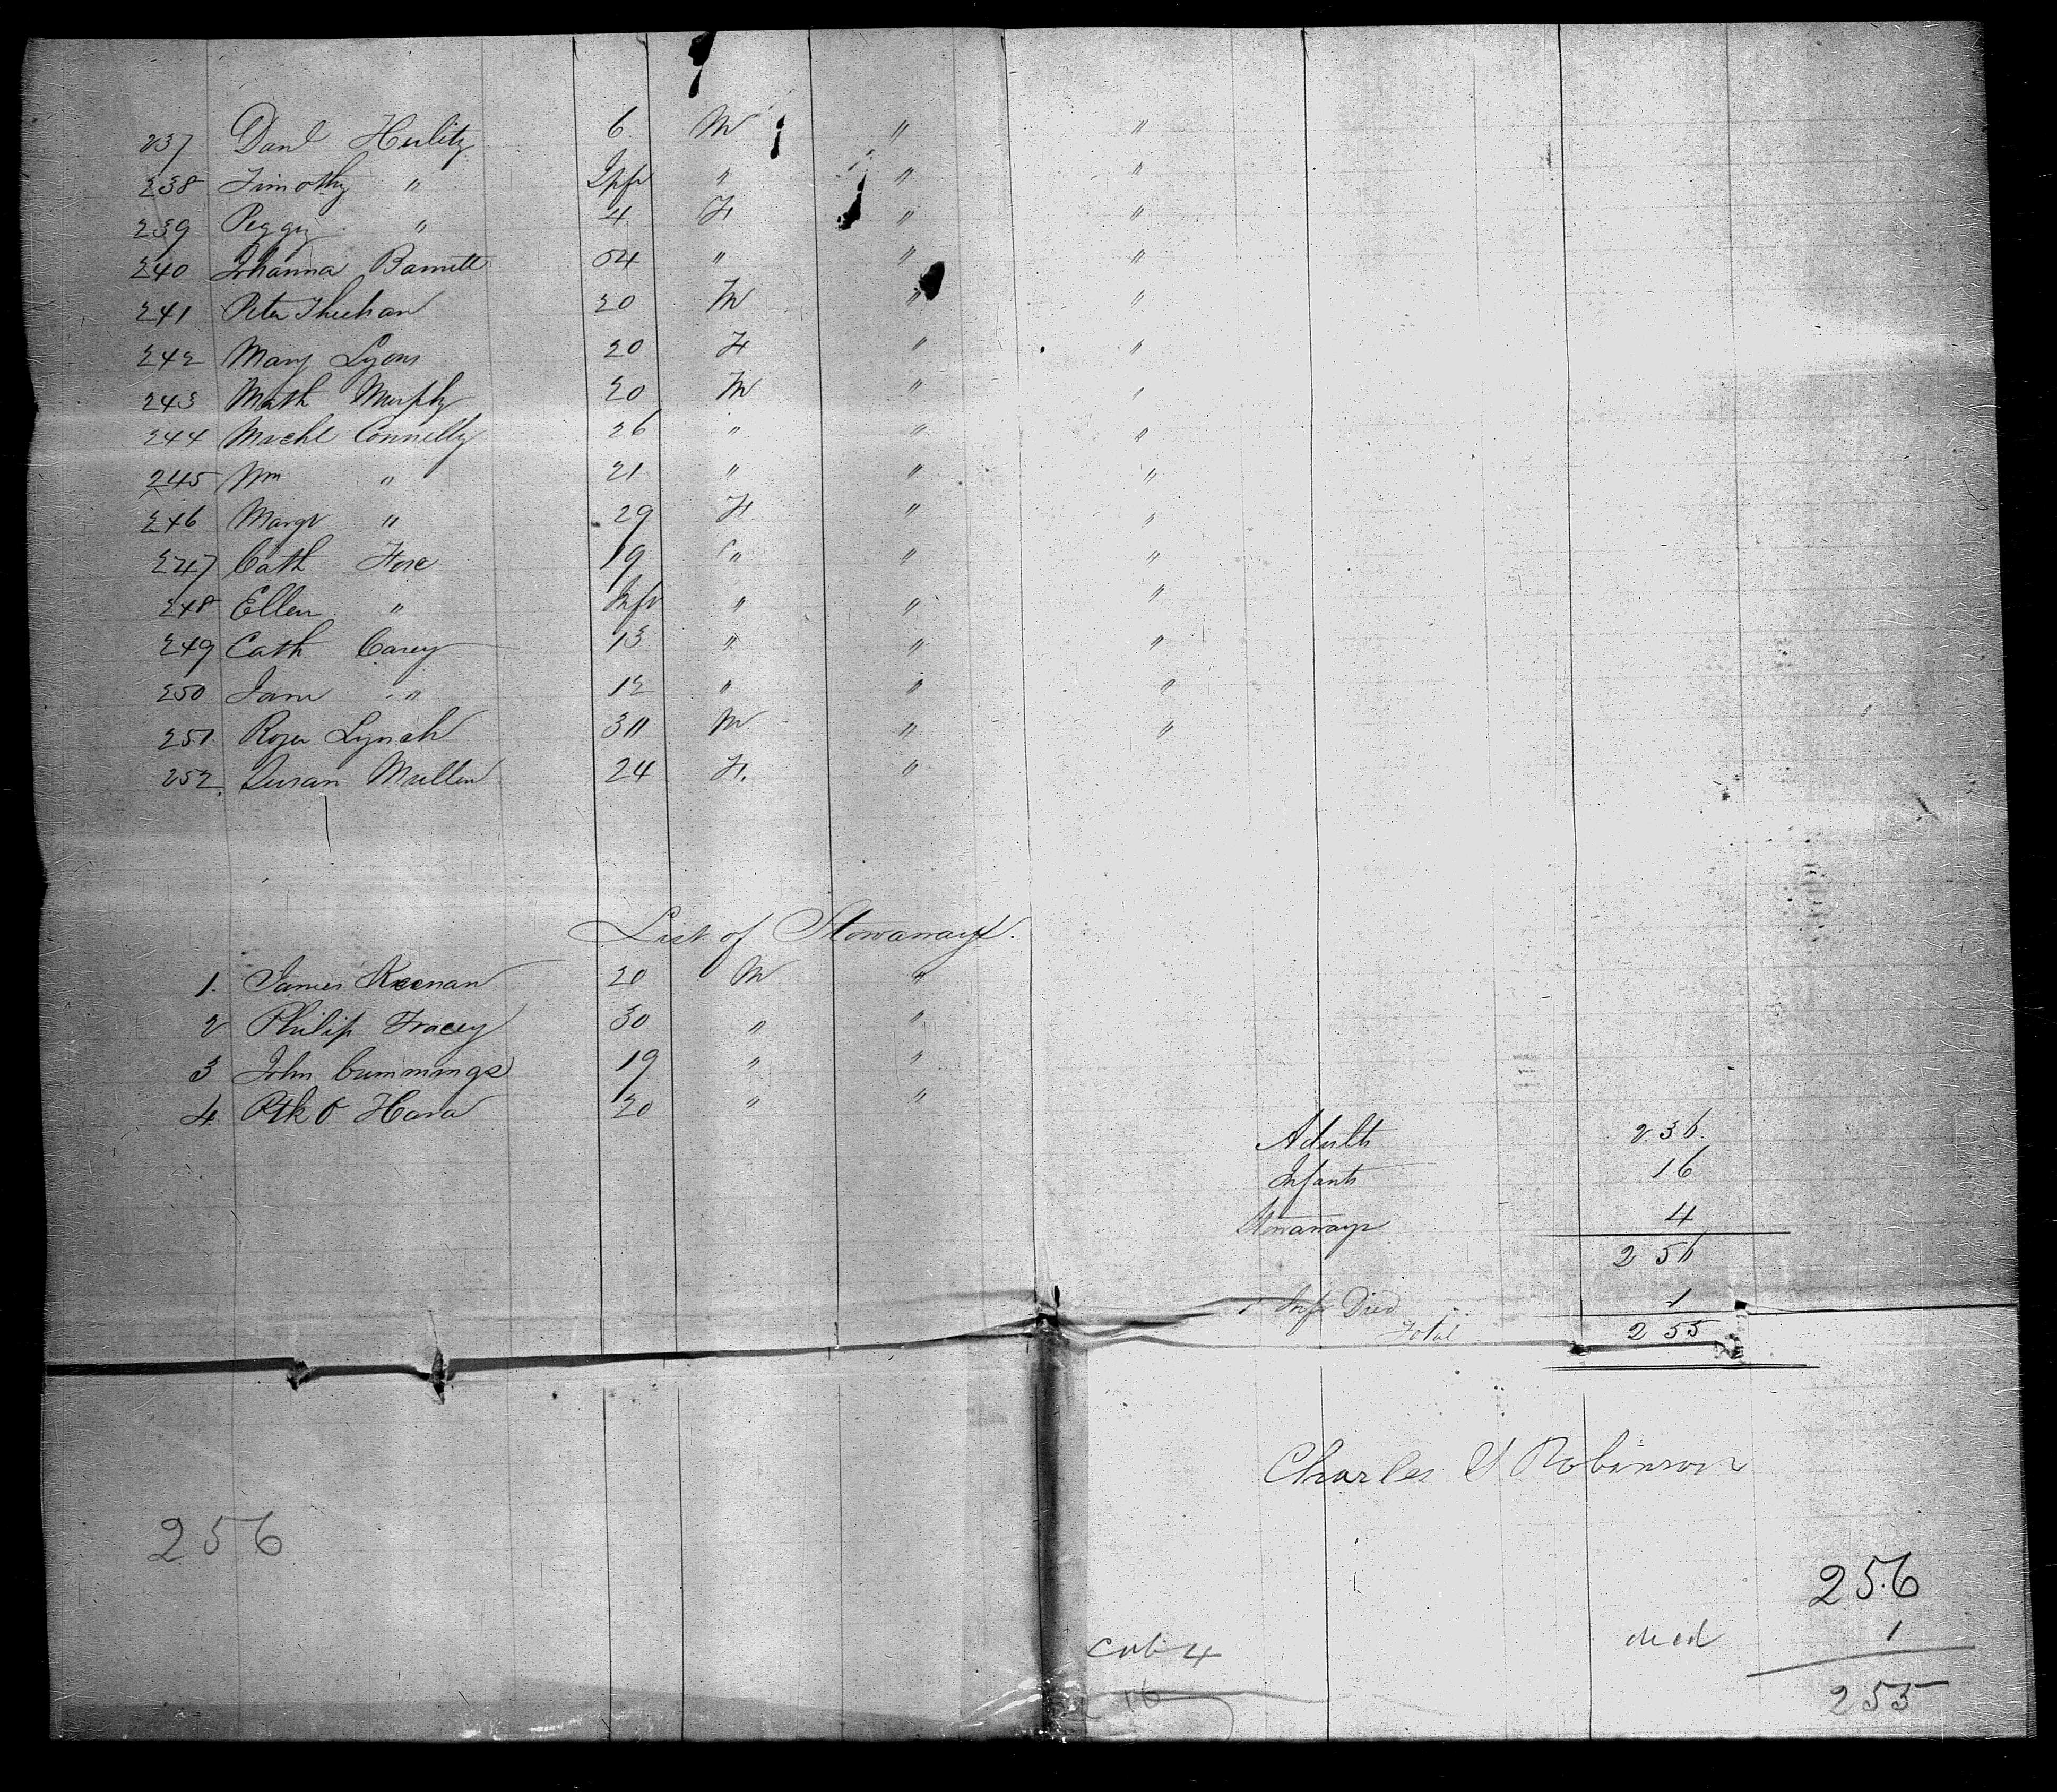 237 Danl Herlitz 6 M " "
238 Timothy " Inft " " "
239 Peggy " 4 F " "
240 Johanna Barnett 54 " " "
241 Peter Sheehan 20 M " "
242 Mary Lyons 20 F " "
243 Math Murphy 20 M " "
244 Michl Connelly 26 " " "
245 Wm " 21 " " "
246 Margt " 29 F " "
247 Cath Fore 19 " " "
248 Ellen " Inft " " "
249 Cath Carey 13 " " "
250 Jane " 12 " " "
251 Roger Lynch 30 M " "
252 Susan Mullen 24 F. "
List of Stowaways.
1. James Keenan 20 M "
2 Philip Tracey 30 " "
3 John Cummings 19 " "
4. Ptk O Hara 20 " "
Adults 236
Infants 16
Stowaways 4
256
1 Inft Died 1
Total 255
Charles Robinson
256
256
Cab 4 died 1
16
255